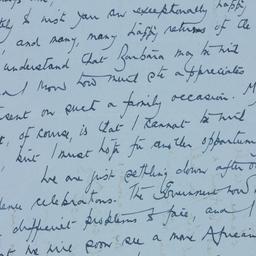 to wish you an exceptionally happy
and many, many happy returns of the
understand that Barbara may be with
and I know how much she appreciates
sent on such a family occasion. M
t, of course, is that I cannot be with
, but I must hope for another opportun
We are just settling down after o
dence celebrations. The Government now
difficult problems to face, and I
t we will soon see a more African